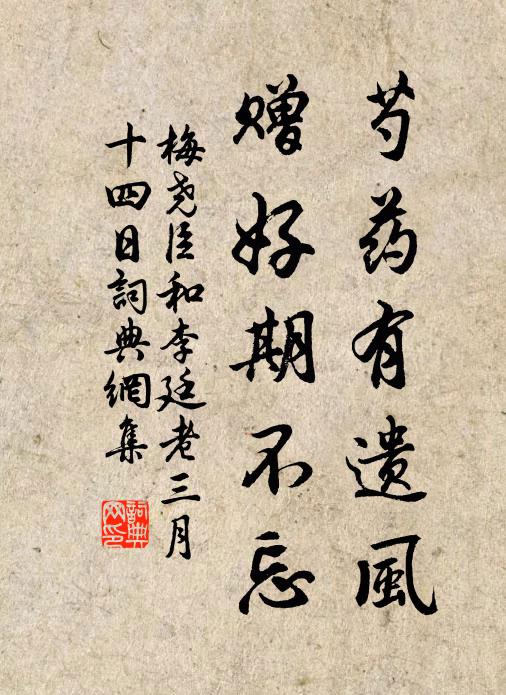 芍药有遗風
赠好期不忘
梅尧臣和李廷老三月
十四日詞典網集
詞典
网印